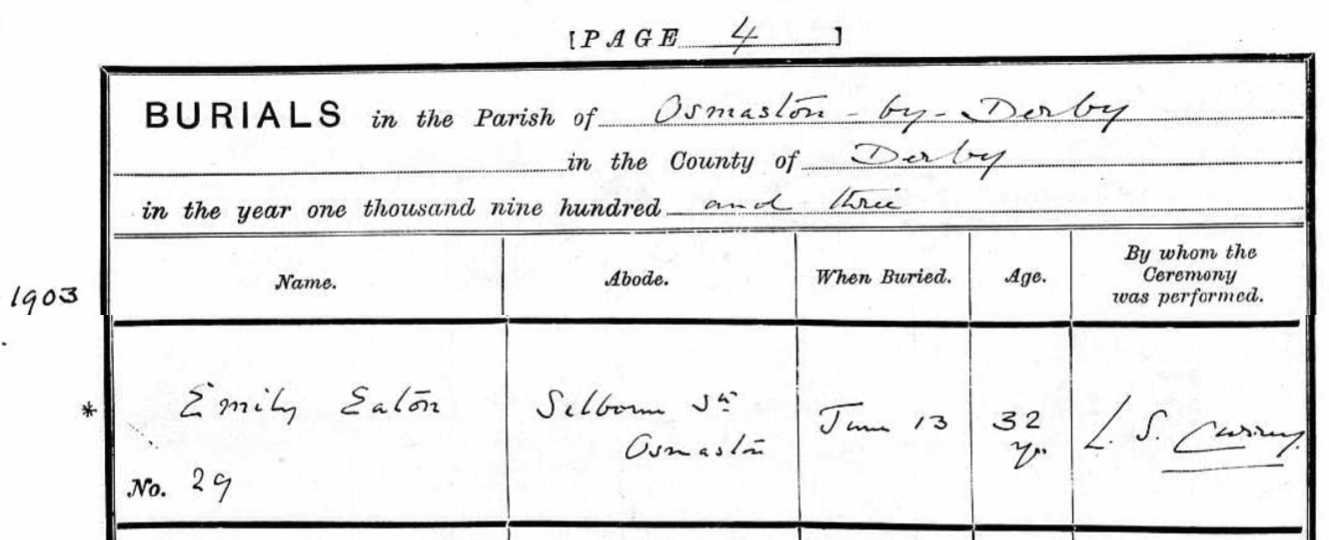 [PAGE 4 ]
BURIALS in the Parish of Osmaston - by - Derby
in the County of Derby
in the year one thousand nine hundred and three
Name. Abode. When Buried. Age. By whom the Ceremony was performed.
1903
* Emily Eaton Selborn St June 13 32 L. S. Currey
Osmaston yrs
No. 29